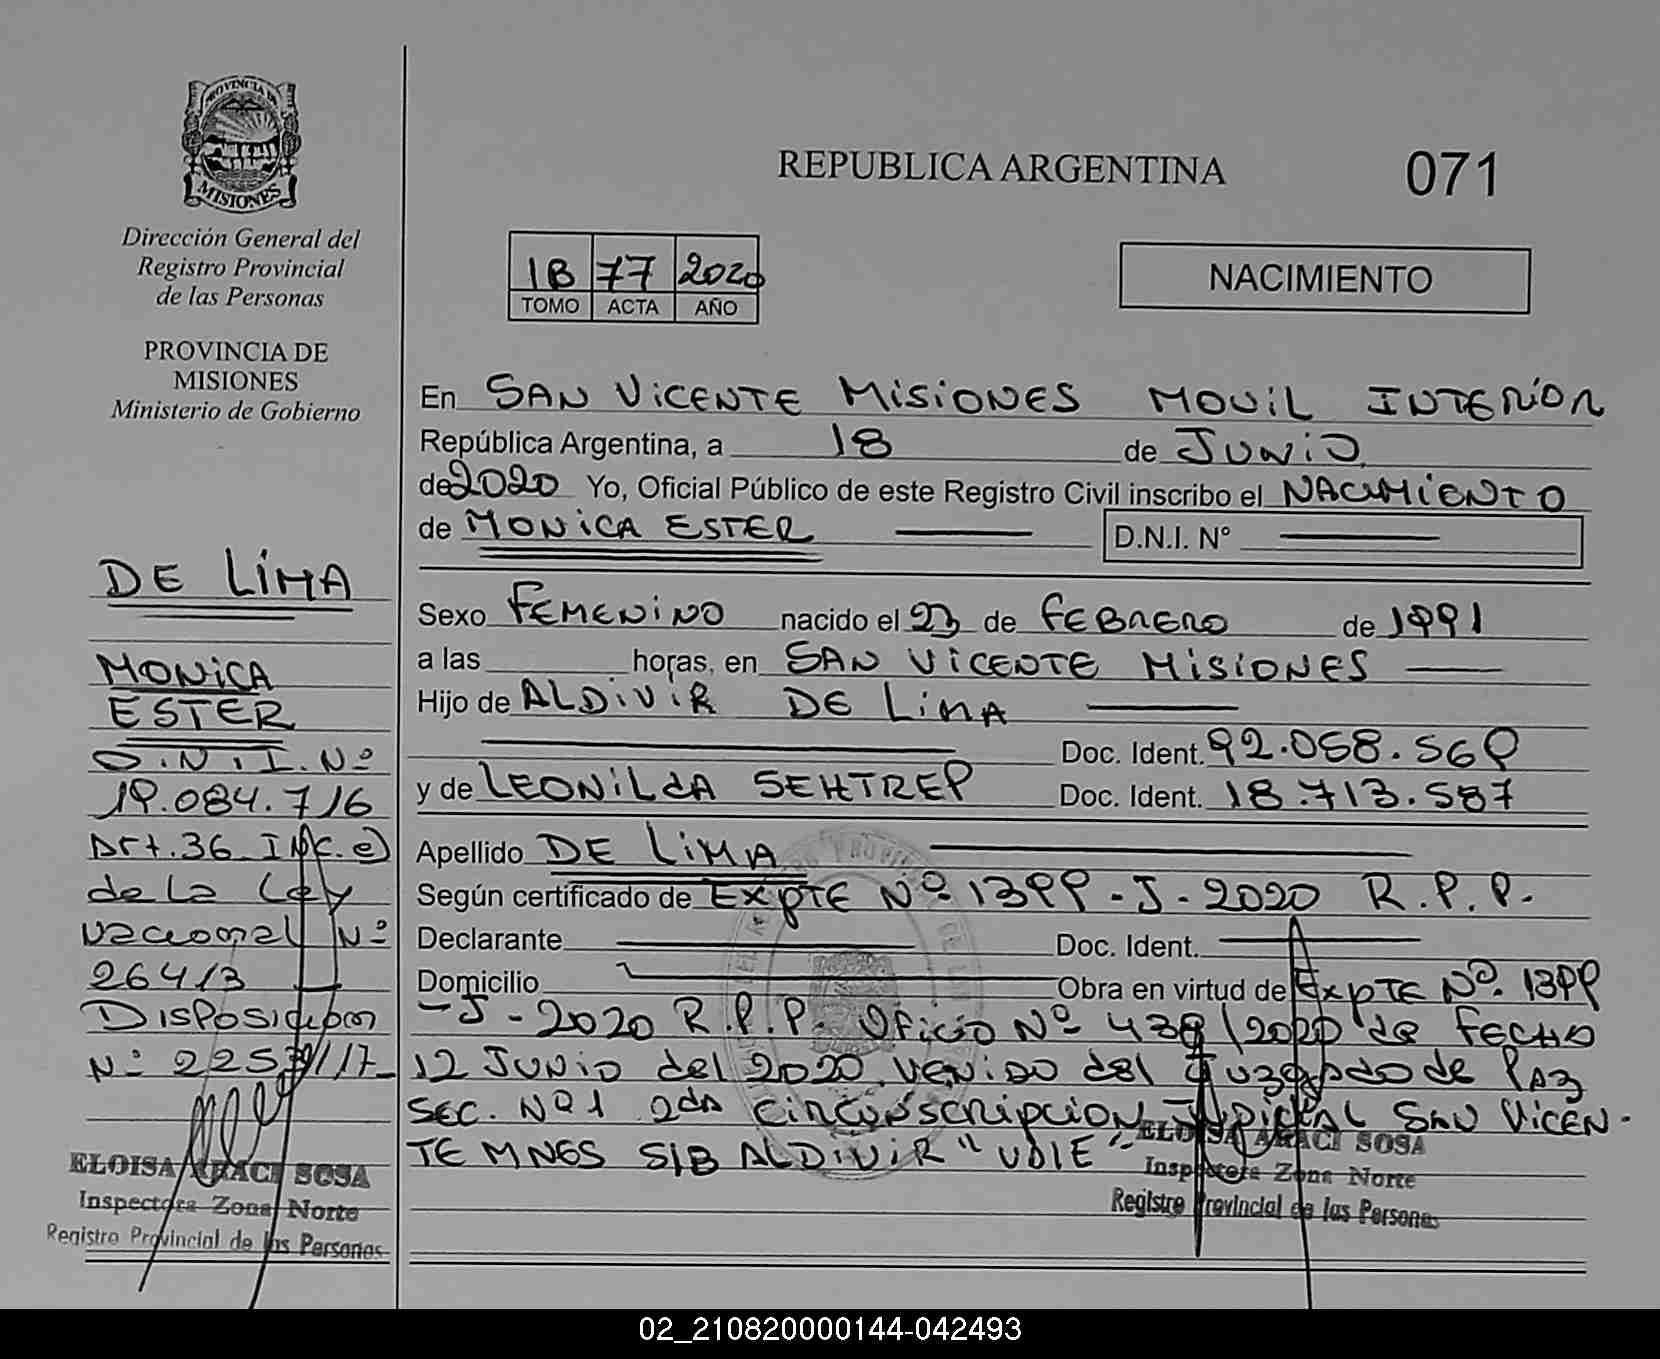 PROVINCIA DE
MISIONES
Dirección General del
Registro Provincial
de las Personas
PROVINCIA DE
MISIONES
Ministerio de Gobierno
DE LIMA
MONICA
ESTER
D.N.I. Nº
19.084.716
Art. 36 INC. e)
de la Ley
Nacional Nº
26413
DISPOSICION
Nº 2253/17
ELOISA ARACI SOSA
Inspectora Zona Norte
Registro Provincial de las Personas
REPUBLICA ARGENTINA
071
1B 77 2020
TOMO ACTA AÑO
NACIMIENTO
En SAN VICENTE MISIONES MOVIL INTERIOR
República Argentina, a 18 de JUNIO
de 2020 Yo, Oficial Público de este Registro Civil inscribo el NACIMIENTO
de MONICA ESTER D.N.I. N°
Sexo FEMENINO nacido el 23 de FEBRERO de 1991
a las horas, en SAN VICENTE MISIONES
Hijo de ALDIVIR DE LIMA
Doc. Ident. 92.058.569
y de LEONILDA SEHTREP Doc. Ident. 18.713.587
Apellido DE LIMA
Según certificado de EXPTE Nº 1399-J-2020 R.P.P.
Declarante Doc. Ident.
Domicilio Obra en virtud de EXPTE Nº 1399
-J-2020 R.P.P. Oficio Nº 439/2020 de FECHA
12 JUNIO del 2020 VENIDO del Juzgado de PAZ
SEC. Nº1 2da CIRCUNSCRIPCION JUDICIAL SAN VICEN-
TE MNES S/B ALDIVIR "VDIE"
ELOISA ARACI SOSA
Inspectora Zona Norte
Registro Provincial de las Personas
02_210820000144-042493